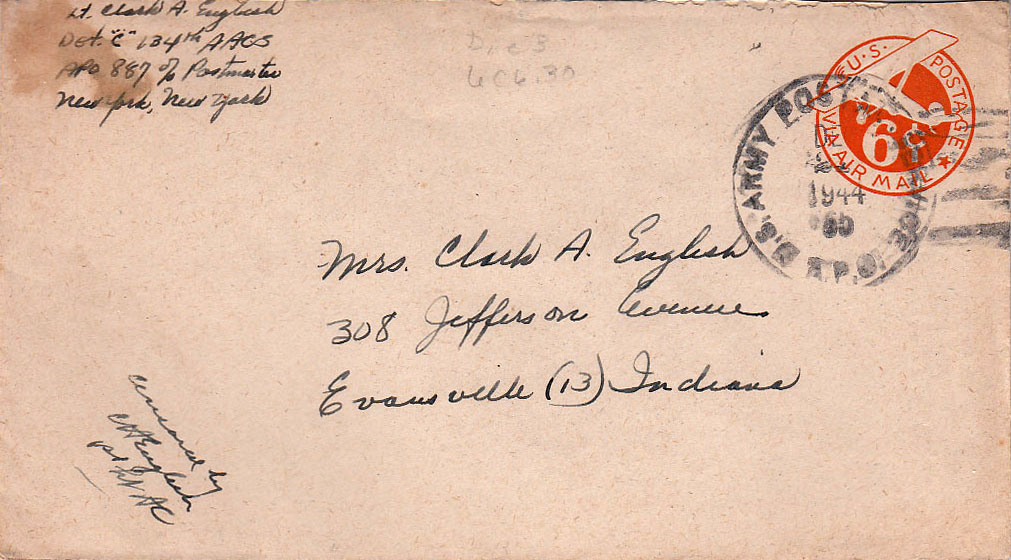 Lt. Clark A. English
Det. "C" 134th AACS
APO 887 c/o Postmaster
New York, New York
Dec 3
U.S. POSTAGE
VIA AIR MAIL
6¢
U.S. ARMY POSTAL SERVICE A.P.O.
1944
Mrs. Clark A. English
308 Jefferson Avenue
Evansville (13) Indiana
Censored by
CA English
1st Lt AC